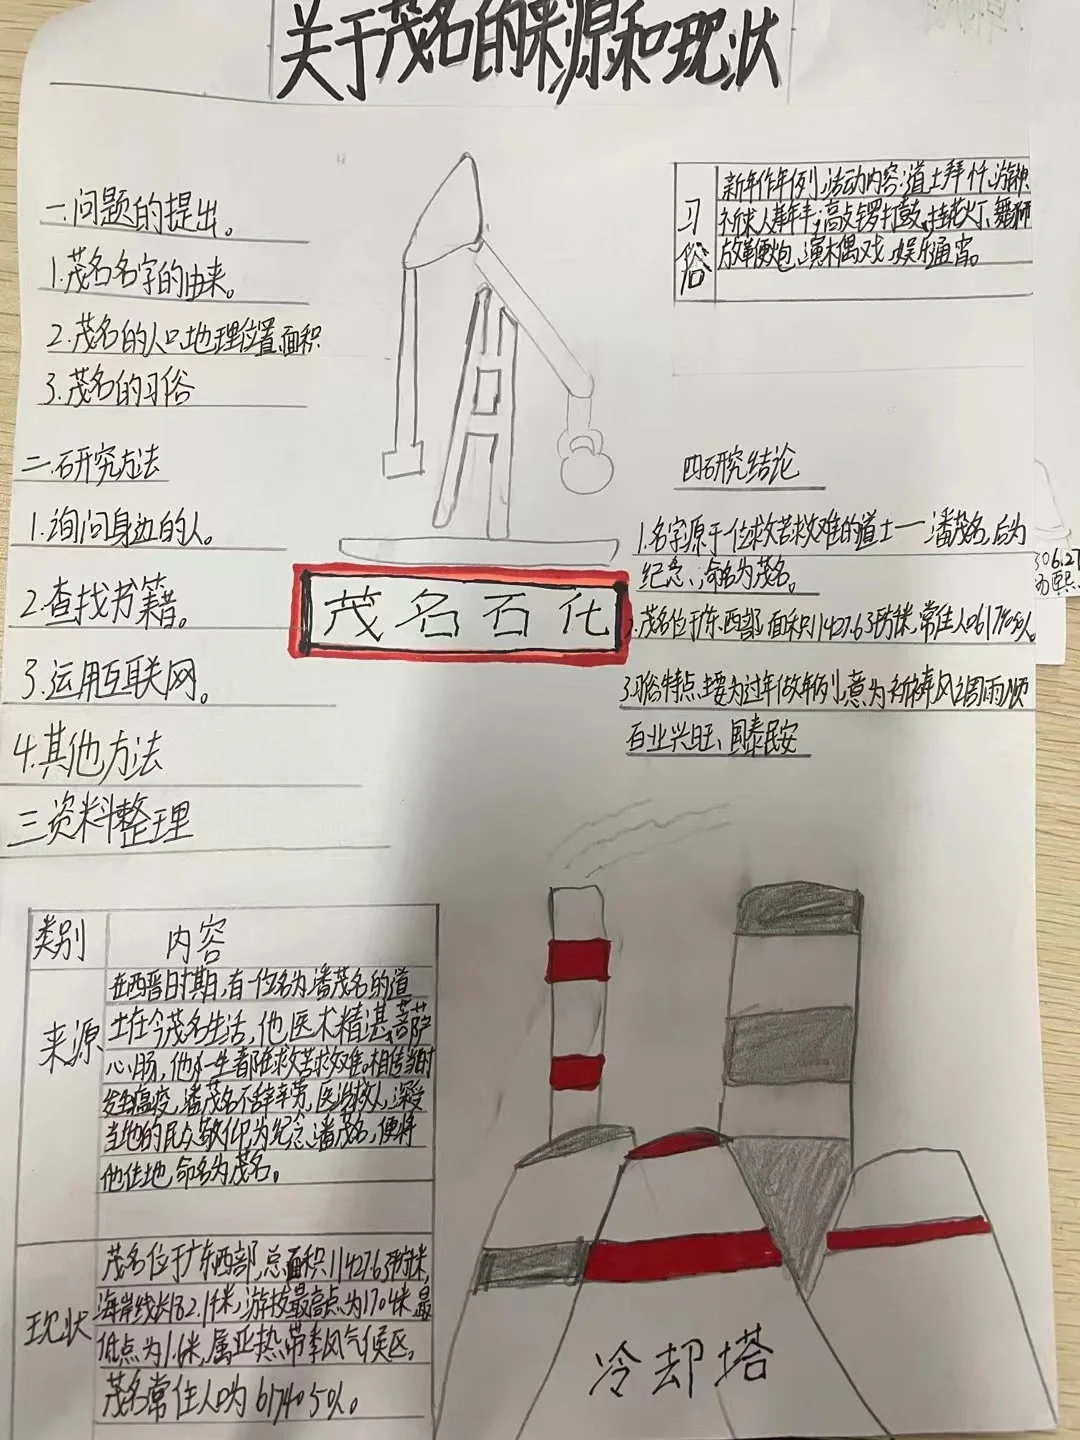 关于茂名的来源和现状
一.问题的提出。
1.茂名名字的由来。
2.茂名的人口.地理位置.面积
3.茂名的习俗
二.研究方法
1.询问身边的人。
2.查找书籍。
3.运用互联网。
4.其他方法
三.资料整理
类别 内容
来源
在西晋时期,有一位名为潘茂名的道
士在今茂名生活,他医术精湛,菩萨
心肠,他一生都在救苦救难。相传当时
发生瘟疫,潘茂名不辞辛劳,医治救人,深受
当地的民众敬仰,为纪念潘茂名,便将
他住地,命名为茂名。
现状
茂名位于广东西部,总面积11427.63平方千米,
海岸线长182.1千米,海拔最高点为1704米,最
低点为1.6米,属亚热带季风气候区。
茂名常住人口为6174050人。
茂名石化
习俗
新年作年例,活动内容:道士拜忏,游神,
祈求人寿年丰;高敲锣打鼓,挂花灯、舞狮
放鞭炮、演木偶戏,娱乐通宵。
四研究结论
1.名字源于一位救苦救难的道士——潘茂名,后为
纪念、命名为茂名。
茂名位于广东西部,面积11427.63平方千米,常住人口6174050人。
3.习俗特点,主要为过年做年例,意为祈祷风调雨顺
百业兴旺、国泰民安
冷却塔